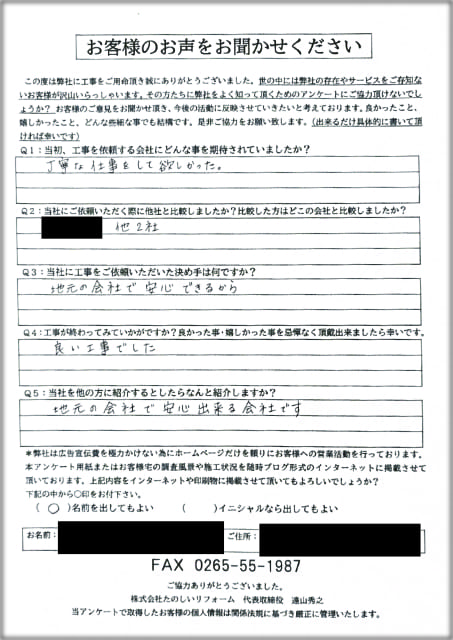 お客様のお声をお聞かせください
この度は弊社に工事をご用命頂き誠にありがとうございました。世の中には弊社の存在やサービスをご存知ないお客様が沢山いらっしゃいます。その方たちに弊社をよく知って頂くためのアンケートにご協力頂けないでしょうか?お客様のご意見をお聞かせ頂き、今後の活動に反映させていきたいと考えております。良かったこと、嬉しかったこと、どんな些細な事でも結構です。是非ご協力をお願い致します。(出来るだけ具体的に書いて頂ければ幸いです)
Q1:当初、工事を依頼する会社にどんな事を期待されていましたか?
丁寧な仕事をして欲しかった。
Q2:当社にご依頼いただく際に他社と比較しましたか?比較した方はどこの会社と比較しましたか?
他2社
Q3:当社に工事をご依頼いただいた決め手は何ですか?
地元の会社で安心できるから
Q4:工事が終わってみていかがですか?良かった事・嬉しかった事を忌憚なく頂戴出来ましたら幸いです。
良い工事でした
Q5:当社を他の方に紹介するとしたらなんと紹介しますか?
地元の会社で安心出来る会社です
*弊社は広告宣伝費を極力かけない為にホームページだけを頼りにお客様への営業活動を行っております。
本アンケート用紙またはお客様宅の調査風景や施工状況を随時ブログ形式のインターネットに掲載させて頂いております。上記内容をインターネットや印刷物に掲載させて頂いてもよろしいでしょうか?
下記の中から○印をお付下さい。
(○)名前を出してもよい ( )イニシャルなら出してもよい
お名前: ご住所:
FAX 0265-55-1987
ご協力ありがとうございました。
株式会社たのしいリフォーム 代表取締役 遠山秀之
当アンケートで取得したお客様の個人情報は関係法規に基づき厳正に管理いたします。